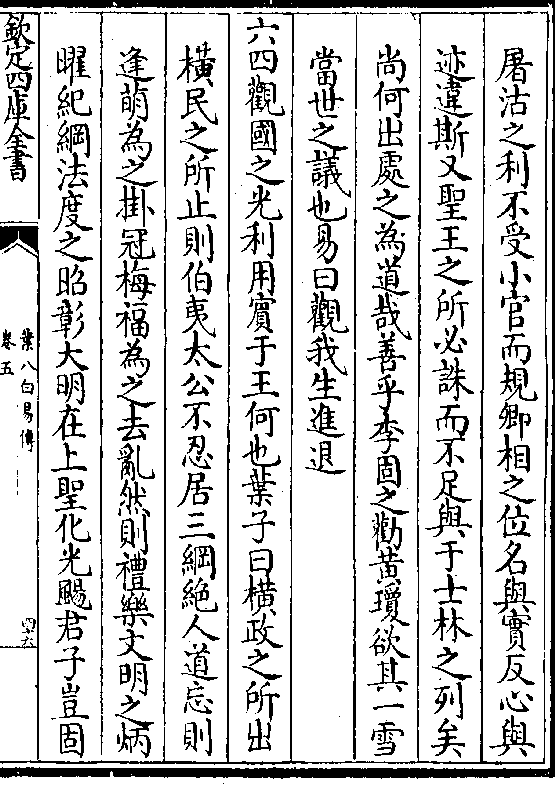 屠沽之利不受小官而規卿相之位名與實反心與
迹違斯又聖王之所必誅而不足與于士林之列矣
尚何出處之為道哉善乎李固之勸黄瓊欲其一雪
當世之議也易曰觀我生進退
六四觀國之光利用賓于王何也葉子曰横政之所出
横民之所止則伯夷太公不忍居三綱絶人道忘則
逢萌為之掛冠梅福為之去亂然則禮樂文明之炳
曜紀綱法度之昭彰大明在上聖化光颺君子豈固
欽定四庫全書
葉八白易傳
卷五
四六